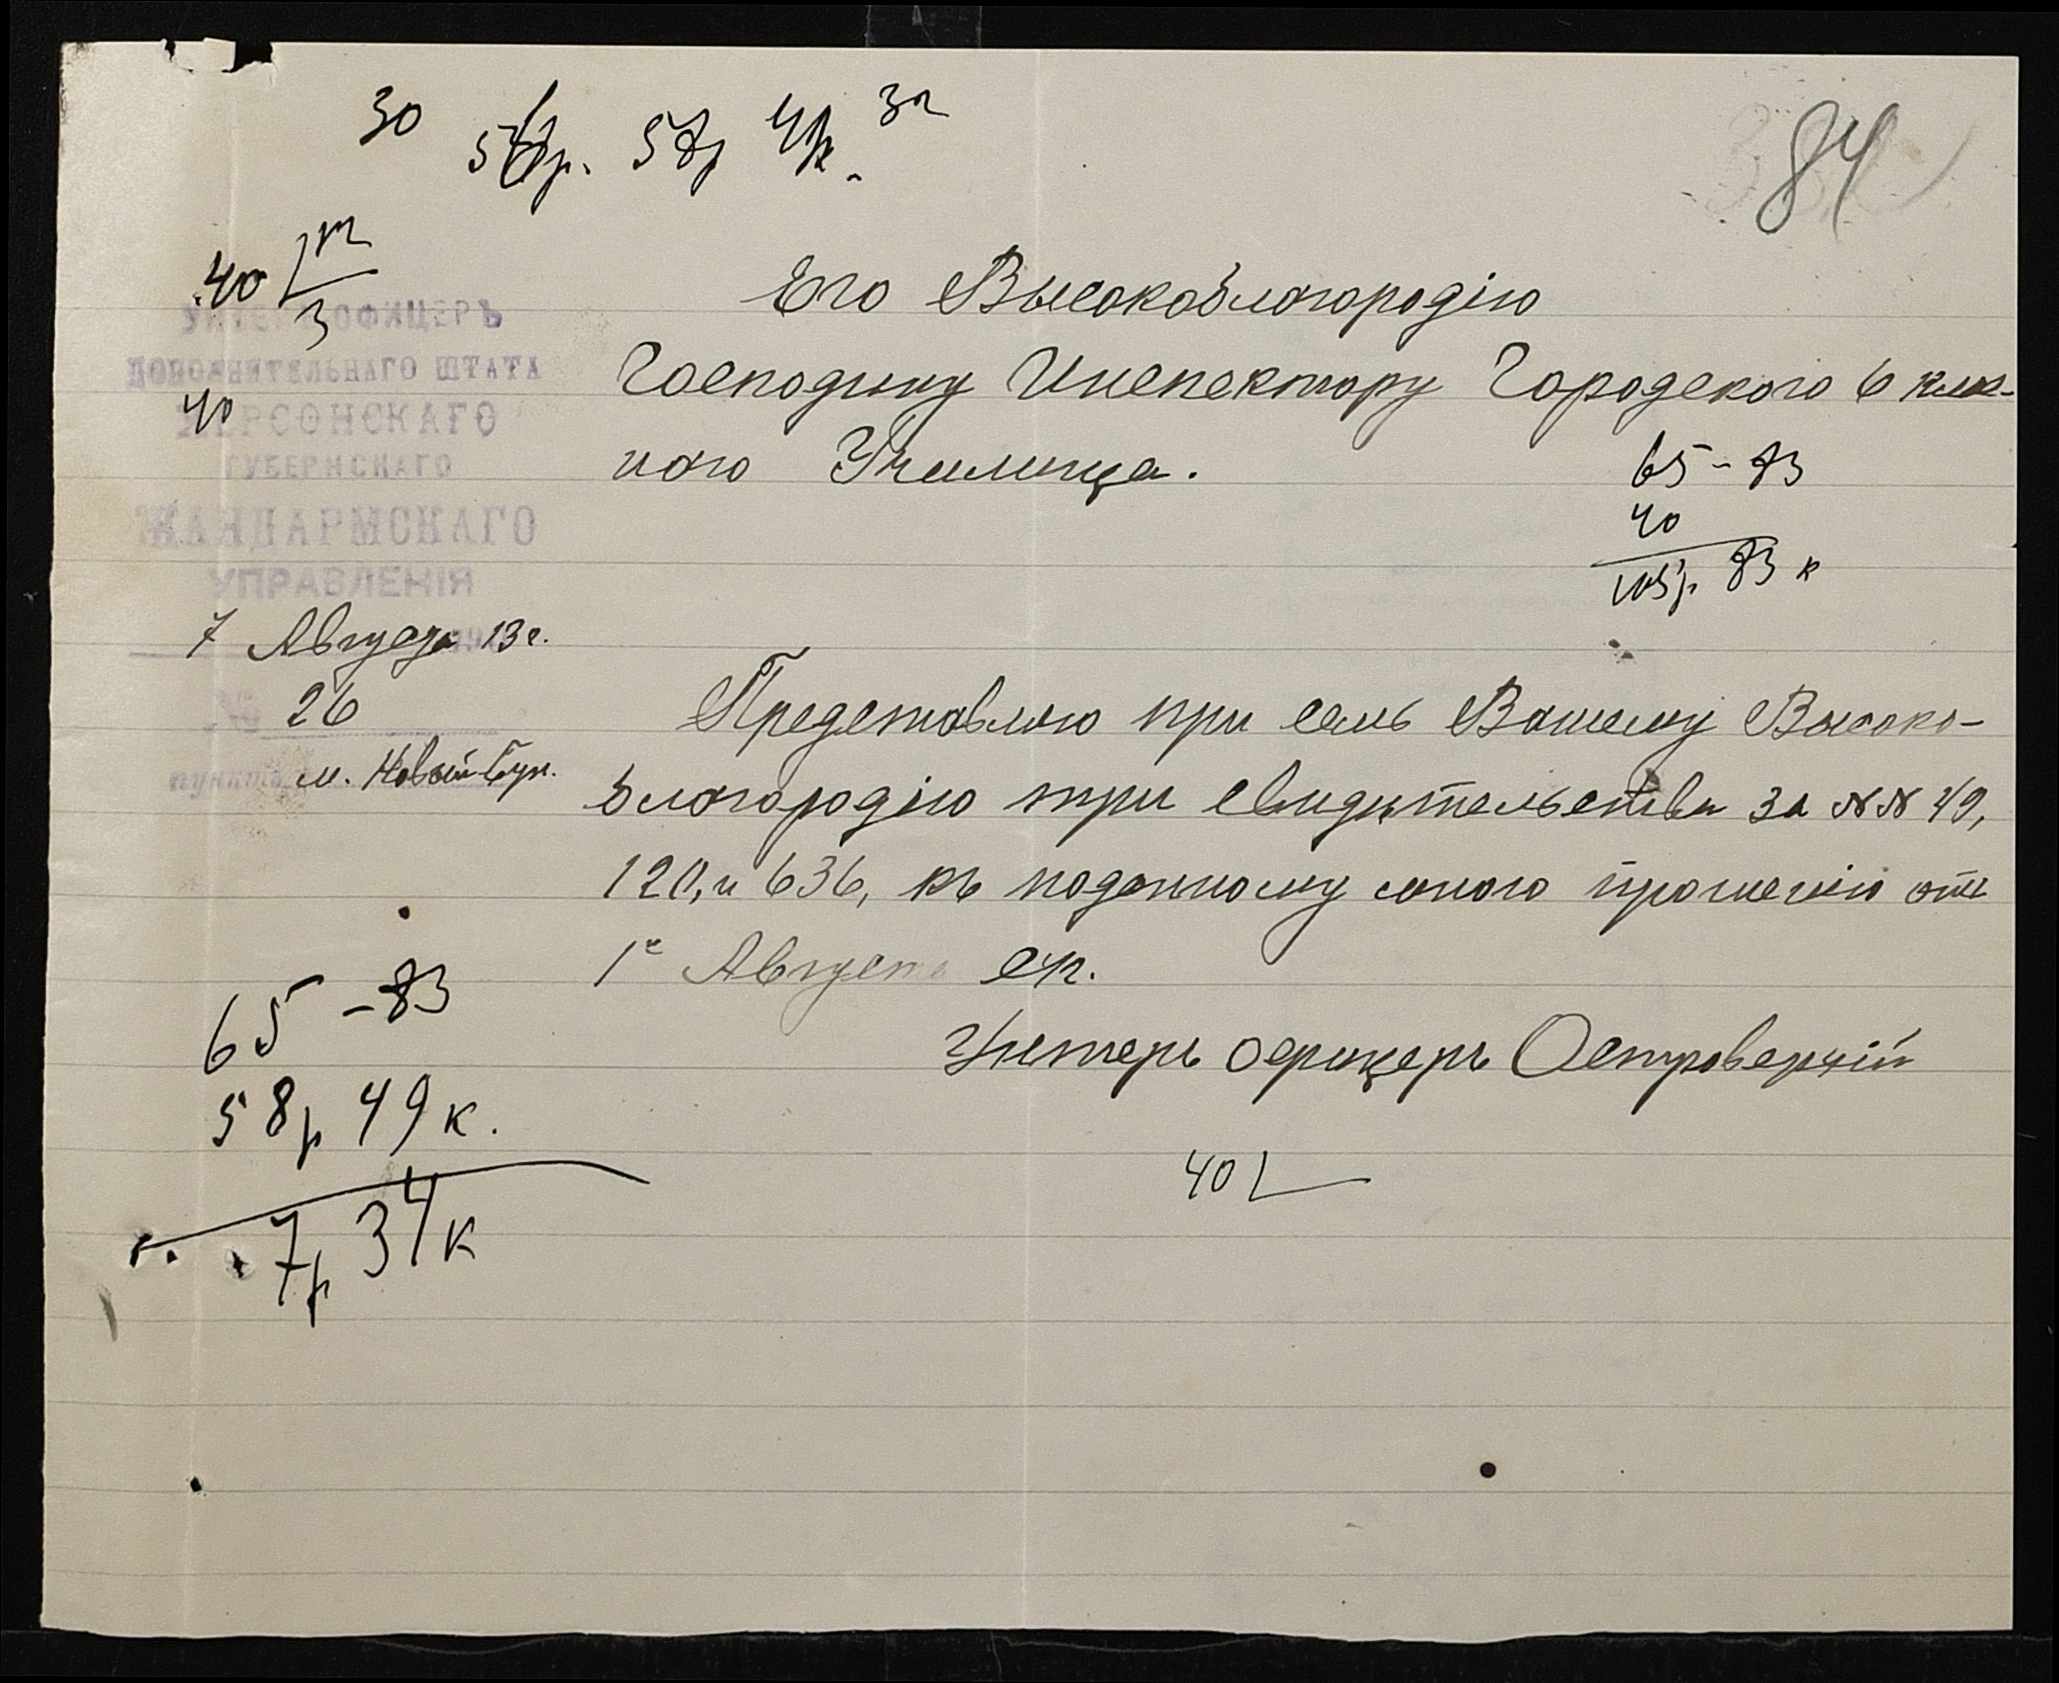 30 58р. 58р 49к. 3л
84
40
3
40
УНТЕРЪ-ОФИЦЕРЪ
ДОПОЛНИТЕЛЬНАГО ШТАТА
ХЕРСОНСКАГО
ГУБЕРНСКАГО
ЖАНДАРМСКАГО
УПРАВЛЕНІЯ
7 Августа 13 г.
№ 26
пункта м. Новый-Буг.
Его Высокоблагородію
Господину Инспектору Городского 6 клас-
наго Училища.
65-83
40
105р 83 к
Представляю при семъ Вашему Высоко-
благородію три свидѣтельства за №№ 49,
120, и 636, къ поданному мною прошенію отъ
1го Августа с/г.
Унтеръ офицеръ Островерхій
65-83
58р 49к.
7р 34к
40